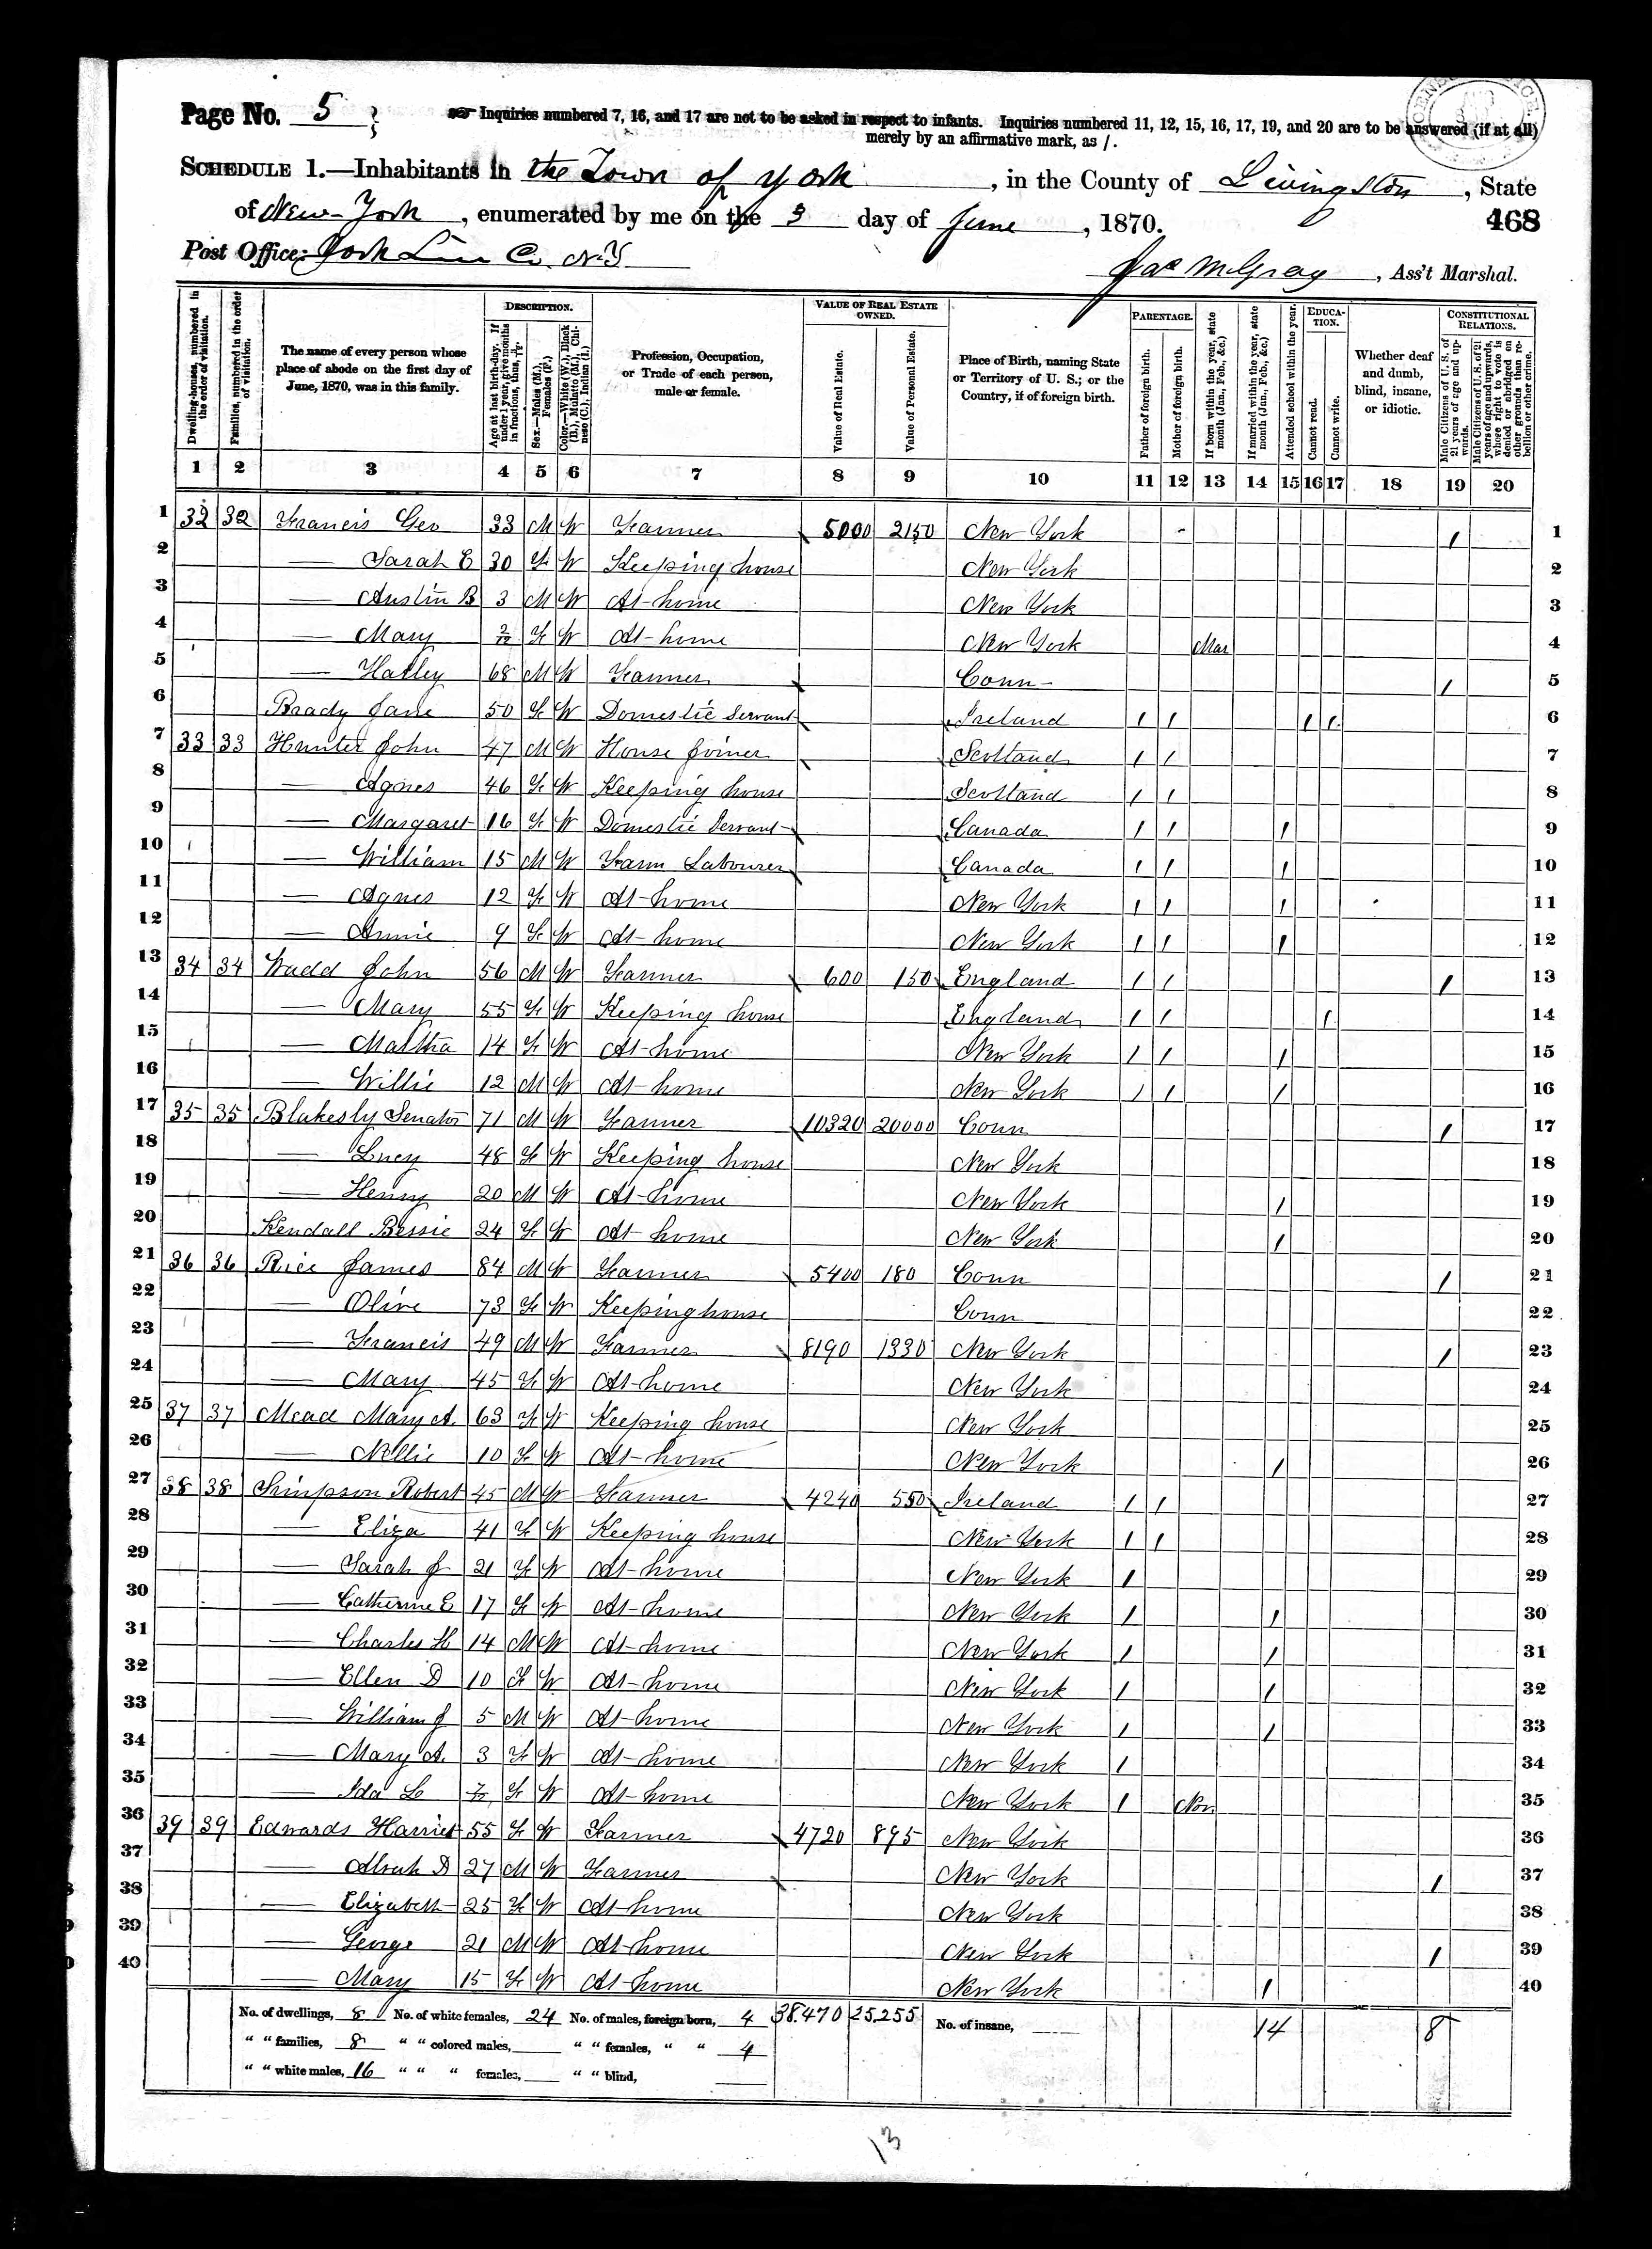 Page No. 5
Inquiries numbered 7, 16, and 17 are not to be asked in respect to infants. Inquiries numbered 11, 12, 15, 16, 17, 19, and 20 are to be answered (if at all)
merely by an affirmative mark, as /.
SCHEDULE 1.—Inhabitants in the Town of York, in the County of Livingston, State
of New-York, enumerated by me on the 3 day of June, 1870.
468
Post Office: York Liv Co. N.Y
Jas McGray, Ass't Marshal.
Dwelling-houses, numbered in the order of visitation.
Families, numbered in the order of visitation.
The name of every person whose place of abode on the first day of June, 1870, was in this family.
DESCRIPTION.
Age at last birth-day. If under 1 year, give months in fractions, thus, 3/12.
Sex.—Males (M.), Females (F.)
Color.—White (W.), Black (B.), Mulatto (M.), Chinese (C.), Indian (I.)
Profession, Occupation, or Trade of each person, male or female.
VALUE OF REAL ESTATE OWNED.
Value of Real Estate.
Value of Personal Estate.
Place of Birth, naming State or Territory of U. S.; or the Country, if of foreign birth.
PARENTAGE.
Father of foreign birth.
Mother of foreign birth.
If born within the year, state month (Jan., Feb., &c.)
If married within the year, state month (Jan., Feb., &c.)
Attended school within the year.
EDUCATION.
Cannot read.
Cannot write.
Whether deaf and dumb, blind, insane, or idiotic.
CONSTITUTIONAL RELATIONS.
Male Citizens of U. S. of 21 years of age and upwards.
Male Citizens of U. S. of 21 years of age and upwards, whose right to vote is denied or abridged on other grounds than rebellion or other crime.
1 2 3 4 5 6 7 8 9 10 11 12 13 14 15 16 17 18 19 20
1 32 32 Francis Geo 33 M W Farmer 5000 2150 New York / 1
2 — Sarah E 30 F W Keeping house New York 2
3 — Austin B 3 M W At-home New York 3
4 — Mary 2/12 F W At-home New York Mar 4
5 — Hatley 68 M W Farmer Conn- / 5
6 Brady Jane 50 F W Domestic Servant Ireland / / / / 6
7 33 33 Hunter John 47 M W House Joiner Scotland / / 7
8 — Agnes 46 F W Keeping house Scotland / / 8
9 — Margaret 16 F W Domestic Servant Canada / / / 9
10 — William 15 M W Farm Labourer Canada / / / 10
11 — Agnes 12 F W At-home New York / / / 11
12 — Annie 9 F W At-home New York / / / 12
13 34 34 Wadd John 56 M W Farmer 600 150 England / / / 13
14 — Mary 55 F W Keeping house England / / / 14
15 — Martha 14 F W At-home New York / / / 15
16 — Willie 12 M W At-home New York / / / 16
17 35 35 Blakesly Senator 71 M W Farmer 10320 20000 Conn / 17
18 — Lucy 48 F W Keeping house New York 18
19 — Henry 20 M W At-home New York / 19
20 Kendall Bessie 24 F W At-home New York / 20
21 36 36 Rice James 84 M W Farmer 5400 180 Conn / 21
22 — Olive 73 F W Keeping house Conn 22
23 — Francis 49 M W Farmer 8190 1330 New York / 23
24 — Mary 45 F W At-home New York 24
25 37 37 Mead Mary A. 63 F W Keeping house New York 25
26 — Nellie 10 F W At-home New York / 26
27 38 38 Simpson Robert 45 M W Farmer 4240 550 Ireland / / 27
28 — Eliza 41 F W Keeping house New York / / 28
29 — Sarah J 21 F W At-home New York / 29
30 — Catherine E 17 F W At-home New York / / 30
31 — Charles H 14 M W At-home New York / / 31
32 — Ellen D 10 F W At-home New York / / 32
33 — William J 5 M W At-home New York / / 33
34 — Mary A. 3 F W At-home New York / 34
35 — Ida L 7/12 F W At-home New York / Nov. 35
36 39 39 Edwards Harriet 55 F W Farmer 4720 895 New York 36
37 — Alvah D 27 M W Farmer New York / 37
38 — Elizabeth 25 F W At-home New York 38
39 — George 21 M W At-home New York / 39
40 — Mary 15 F W At-home New York / 40
No. of dwellings, 8 No. of white females, 24 No. of males, foreign born, 4 38.470 25.255 No. of insane, 14 8
" " families, 8 " " colored males, " " females, " " 4
" " white males, 16 " " " females, " " blind,
13